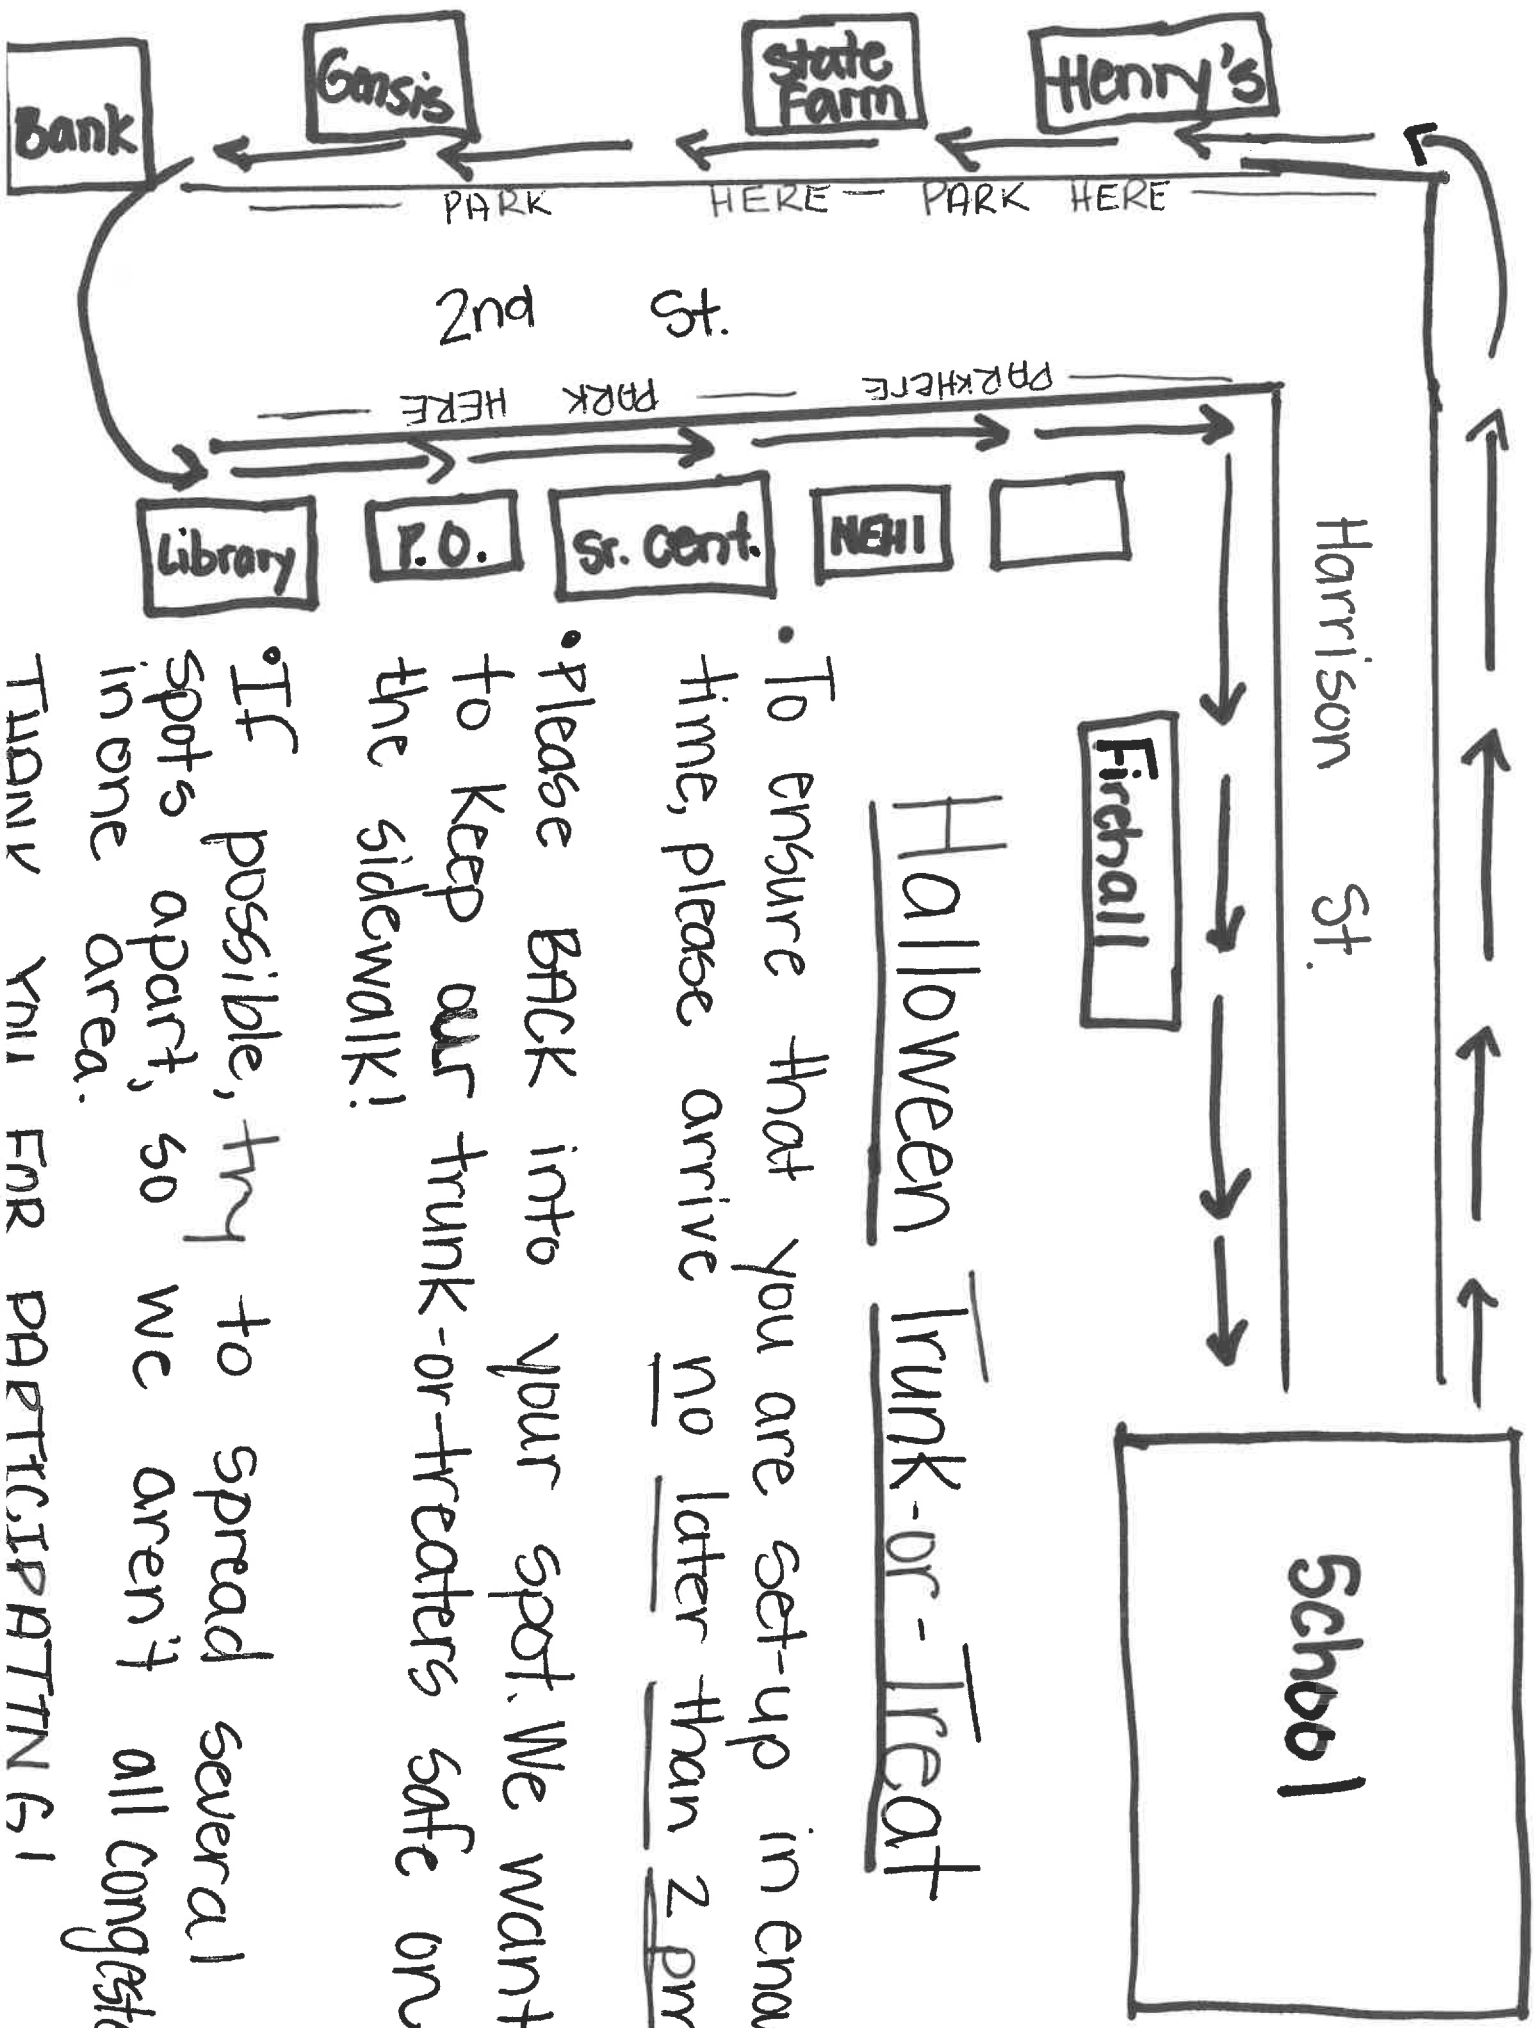 Bank
Gensis
State
Farm
Henry's
PARK HERE — PARK HERE
2nd St.
PARK HERE
PARK HERE
Library
P.O.
Sr. Cent.
NEHI
Harrison St.
Firehall
School
Halloween Trunk-or-Treat
• To ensure that you are set-up in enou
time, please arrive no later than 2 pm
• Please BACK into your spot. We want
to keep our trunk-or-treaters safe on
the sidewalk!
• If possible, try to spread several
spots apart, so we aren't all congeste
in one area.
THANK YOU FOR PARTICIPATING!